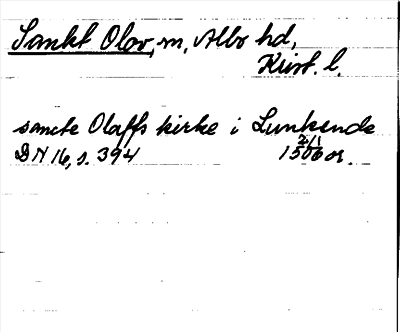 Sankt Olov, m, Albo hd,
Krist. l.
sancte Olaffs kirke i Lunkende
DN 16, s. 394 1506 2/1 or.